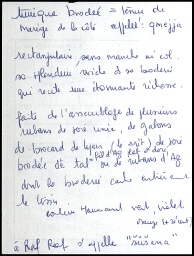 tunique brodée = tenue de
mariage de la côte appellé : qmejja
rectangulaire, sans manche ni col.
sa splendeur réside ds sa broderie
qui reste une étonnante richesse.
faite de l'assemblage de plusieurs
rubans de soie unie, de galons
de brocard de Lyon (le s…) de soie
fil d'Arg. plat et doré
brodée de tal ou de rubans d'Ag
dont la broderie cache entièrement
le tissu
couleur Hammamet vert violet
orange
à Raf Raf s'appelle "sūrīya"